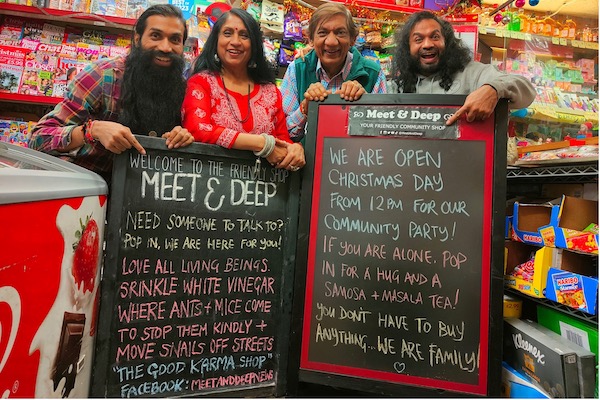 WELCOME TO THE FRIENDLY SHOP
MEET & DEEP
NEED SOMEONE TO TALK TO?
POP IN, WE ARE HERE FOR YOU!
LOVE ALL LIVING BEINGS.
SRINKLE WHITE VINEGAR
WHERE ANTS + MICE COME
TO STOP THEM KINDLY +
MOVE SNAILS OFF STREETS
"THE GOOD KARMA SHOP"
FACEBOOK: MEETANDDEEPNEWS
Meet & Deep
YOUR FRIENDLY COMMUNITY SHOP
WE ARE OPEN
CHRISTMAS DAY
FROM 12PM FOR OUR
COMMUNITY PARTY!
IF YOU ARE ALONE, POP
IN FOR A HUG AND A
SAMOSA + MASALA TEA!
YOU DON'T HAVE TO BUY
ANYTHING... WE ARE FAMILY!
HARIBO
HARIBO
Kleenex